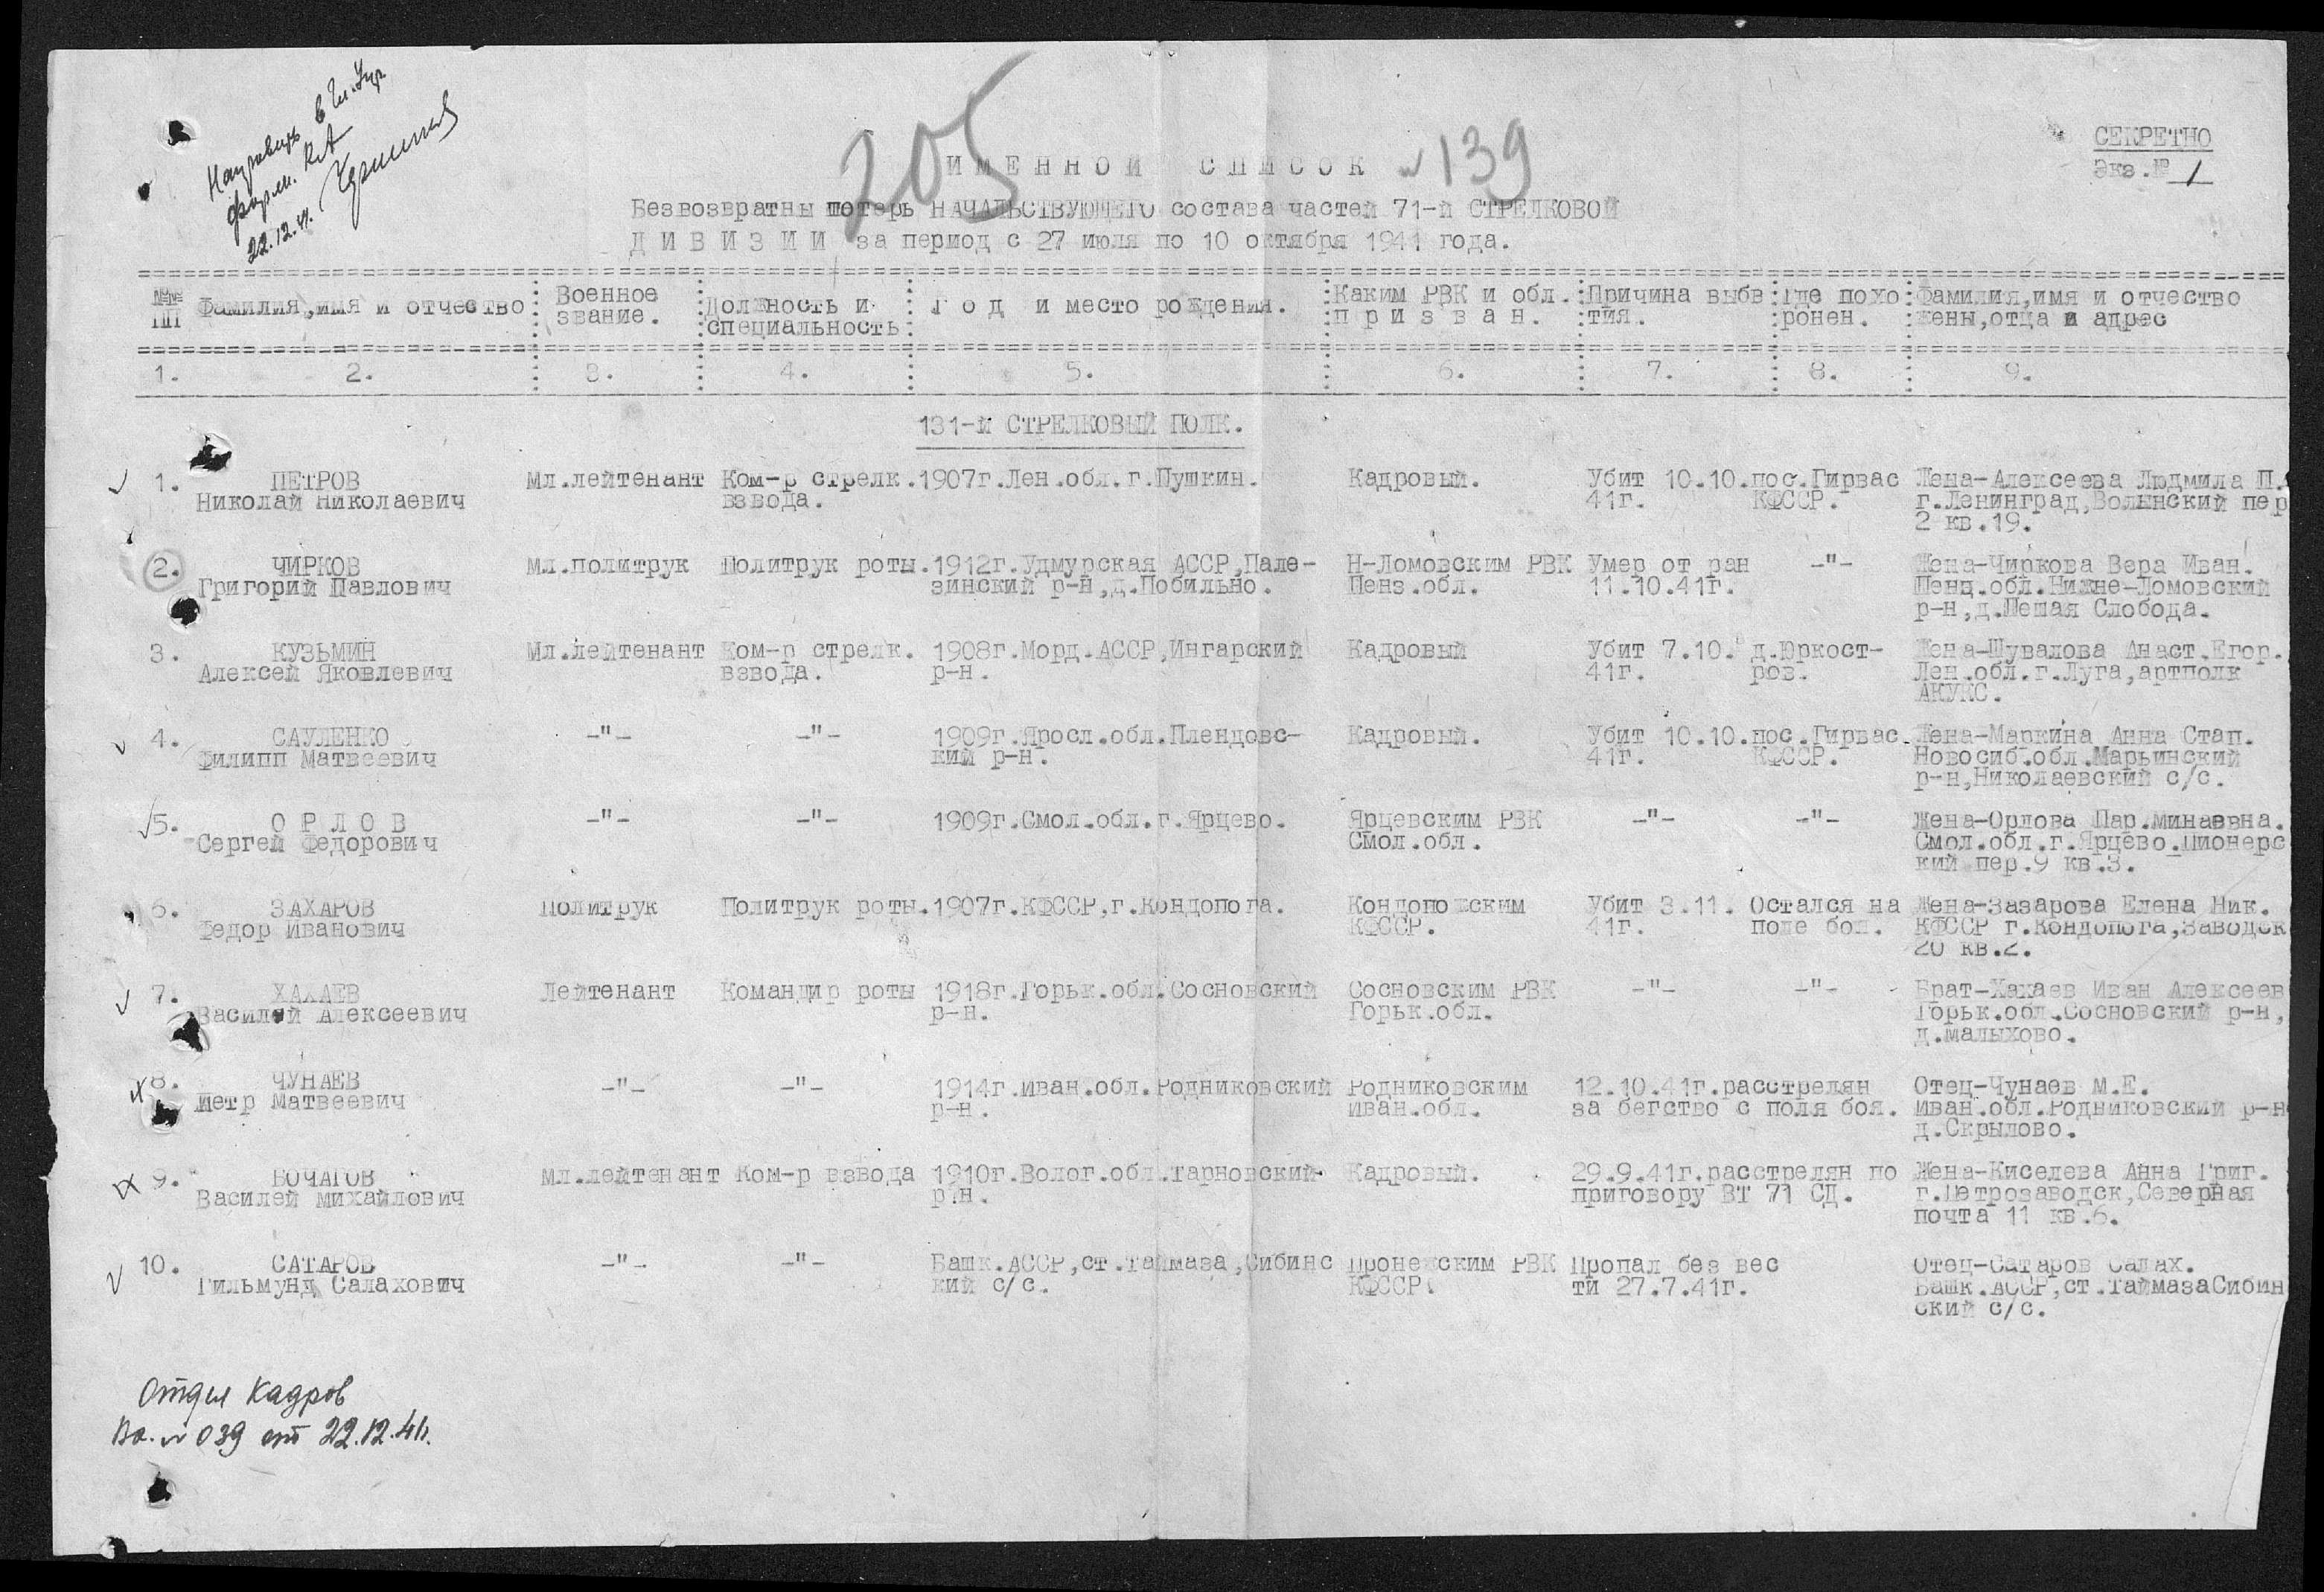 Направить в Гл. Упр.
форм. КА
22.12.41.
205
СЕКРЕТНО
Экз.№ 1
ИМЕННОЙ СПИСОК № 139
Безвозвратны потерь НАЧАЛЬСТВУЮЩЕГО состава частей 71-й СТРЕЛКОВОЙ
ДИВИЗИИ за период с 27 июля по 10 октября 1941 года.
№№ ПП Фамилия,имя и отчество Военное звание. Должность и специальность Год и место рождения. Каким РВК и обл. призван. Причина выбытия. Где похоронен. Фамилия,имя и отчество жены,отца и адрес
1. 2. 3. 4. 5. 6. 7. 8. 9.
131-й СТРЕЛКОВЫЙ ПОЛК.
1. ПЕТРОВ Мл.лейтенант Ком-р стрелк. 1907г.Лен.обл.г.Пушкин. Кадровый. Убит 10.10. пос.Гирвас Жена-Алексеева Людмила П.
Николай Николаевич взвода. 41г. КФССР. г.Ленинград,Волынский пер
2 кв.19.
2. ЧИРКОВ Мл.политрук Политрук роты. 1912г.Удмурская АССР,Пале- Н-Ломовским РВК Умер от ран -"- Жена-Чиркова Вера Иван.
Григорий Павлович зинский р-н,д.Побильно. Пенз.обл. 11.10.41г. Пенз.обл.Нижне-Ломовский
р-н,д.Пешая Слобода.
3. КУЗЬМИН Мл.лейтенант Ком-р стрелк. 1908г.Морд.АССР,Ингарский Кадровый Убит 7.10. д.Юркост- Жена-Шувалова Анаст.Егор.
Алексей Яковлевич взвода. р-н. 41г. ров. Лен.обл.г.Луга,артполк
АКУКС.
4. САУЛЕНКО -"- -"- 1909г.Яросл.обл.Плендовс- Кадровый. Убит 10.10. пос.Гирвас. Жена-Маркина Анна Стап.
Филипп Матвеевич кий р-н. 41г. КФССР. Новосиб.обл.Марьинский
р-н,Николаевский с/с.
5. ОРЛОВ -"- -"- 1909г.Смол.обл.г.Ярцево. Ярцевским РВК -"- -"- Жена-Орлова Пар.Минаевна.
Сергей Федорович Смол.обл. Смол.обл.г.Ярцево.Пионерс
кий пер.9 кв.3.
6. ЗАХАРОВ Политрук Политрук роты. 1907г.КФССР,г.Кондопога. Кондопожским Убит 3.11. Остался на Жена-Зазарова Елена Ник.
Федор Иванович КФССР. 41г. поле бол. КФССР г.Кондопога,Заводск
20 кв.2.
7. ХАХАЕВ Лейтенант Командир роты 1918г.Горьк.обл.Сосновский Сосновским РВК -"- -"- Брат-Хахаев Иван Алексеев
Василий Алексеевич р-н. Горьк.обл. Горьк.обл.Сосновский р-н,
д.Малыхово.
8. ЧУНАЕВ -"- -"- 1914г.Иван.обл.Родниковский Родниковским 12.10.41г.расстрелян Отец-Чунаев М.Е.
Петр Матвеевич р-н. Иван.обл. за бегство с поля боя. Иван.обл.Родниковский р-н
д.Скрылово.
9. БОЧАГОВ Мл.лейтенант Ком-р взвода 1910г.Волог.обл.Тарновский Кадровый. 29.9.41г.расстрелян по Жена-Киселева Анна Григ.
Василей Михайлович р-н. приговору ВТ 71 СД. г.Петрозаводск,Северная
почта 11 кв.6.
10. САТАРОВ -"- -"- Башк.АССР,ст.Таймаза,Сибинс Пронежским РВК Пропал без вес Отец-Сатаров Салах.
Гильмунд Салахович кий с/с. КФССР. ти 27.7.41г. Башк.АССР,ст.ТаймазаСибин
ский с/с.
Отдел Кадров
Вх. № 039 от 22.12.41г.